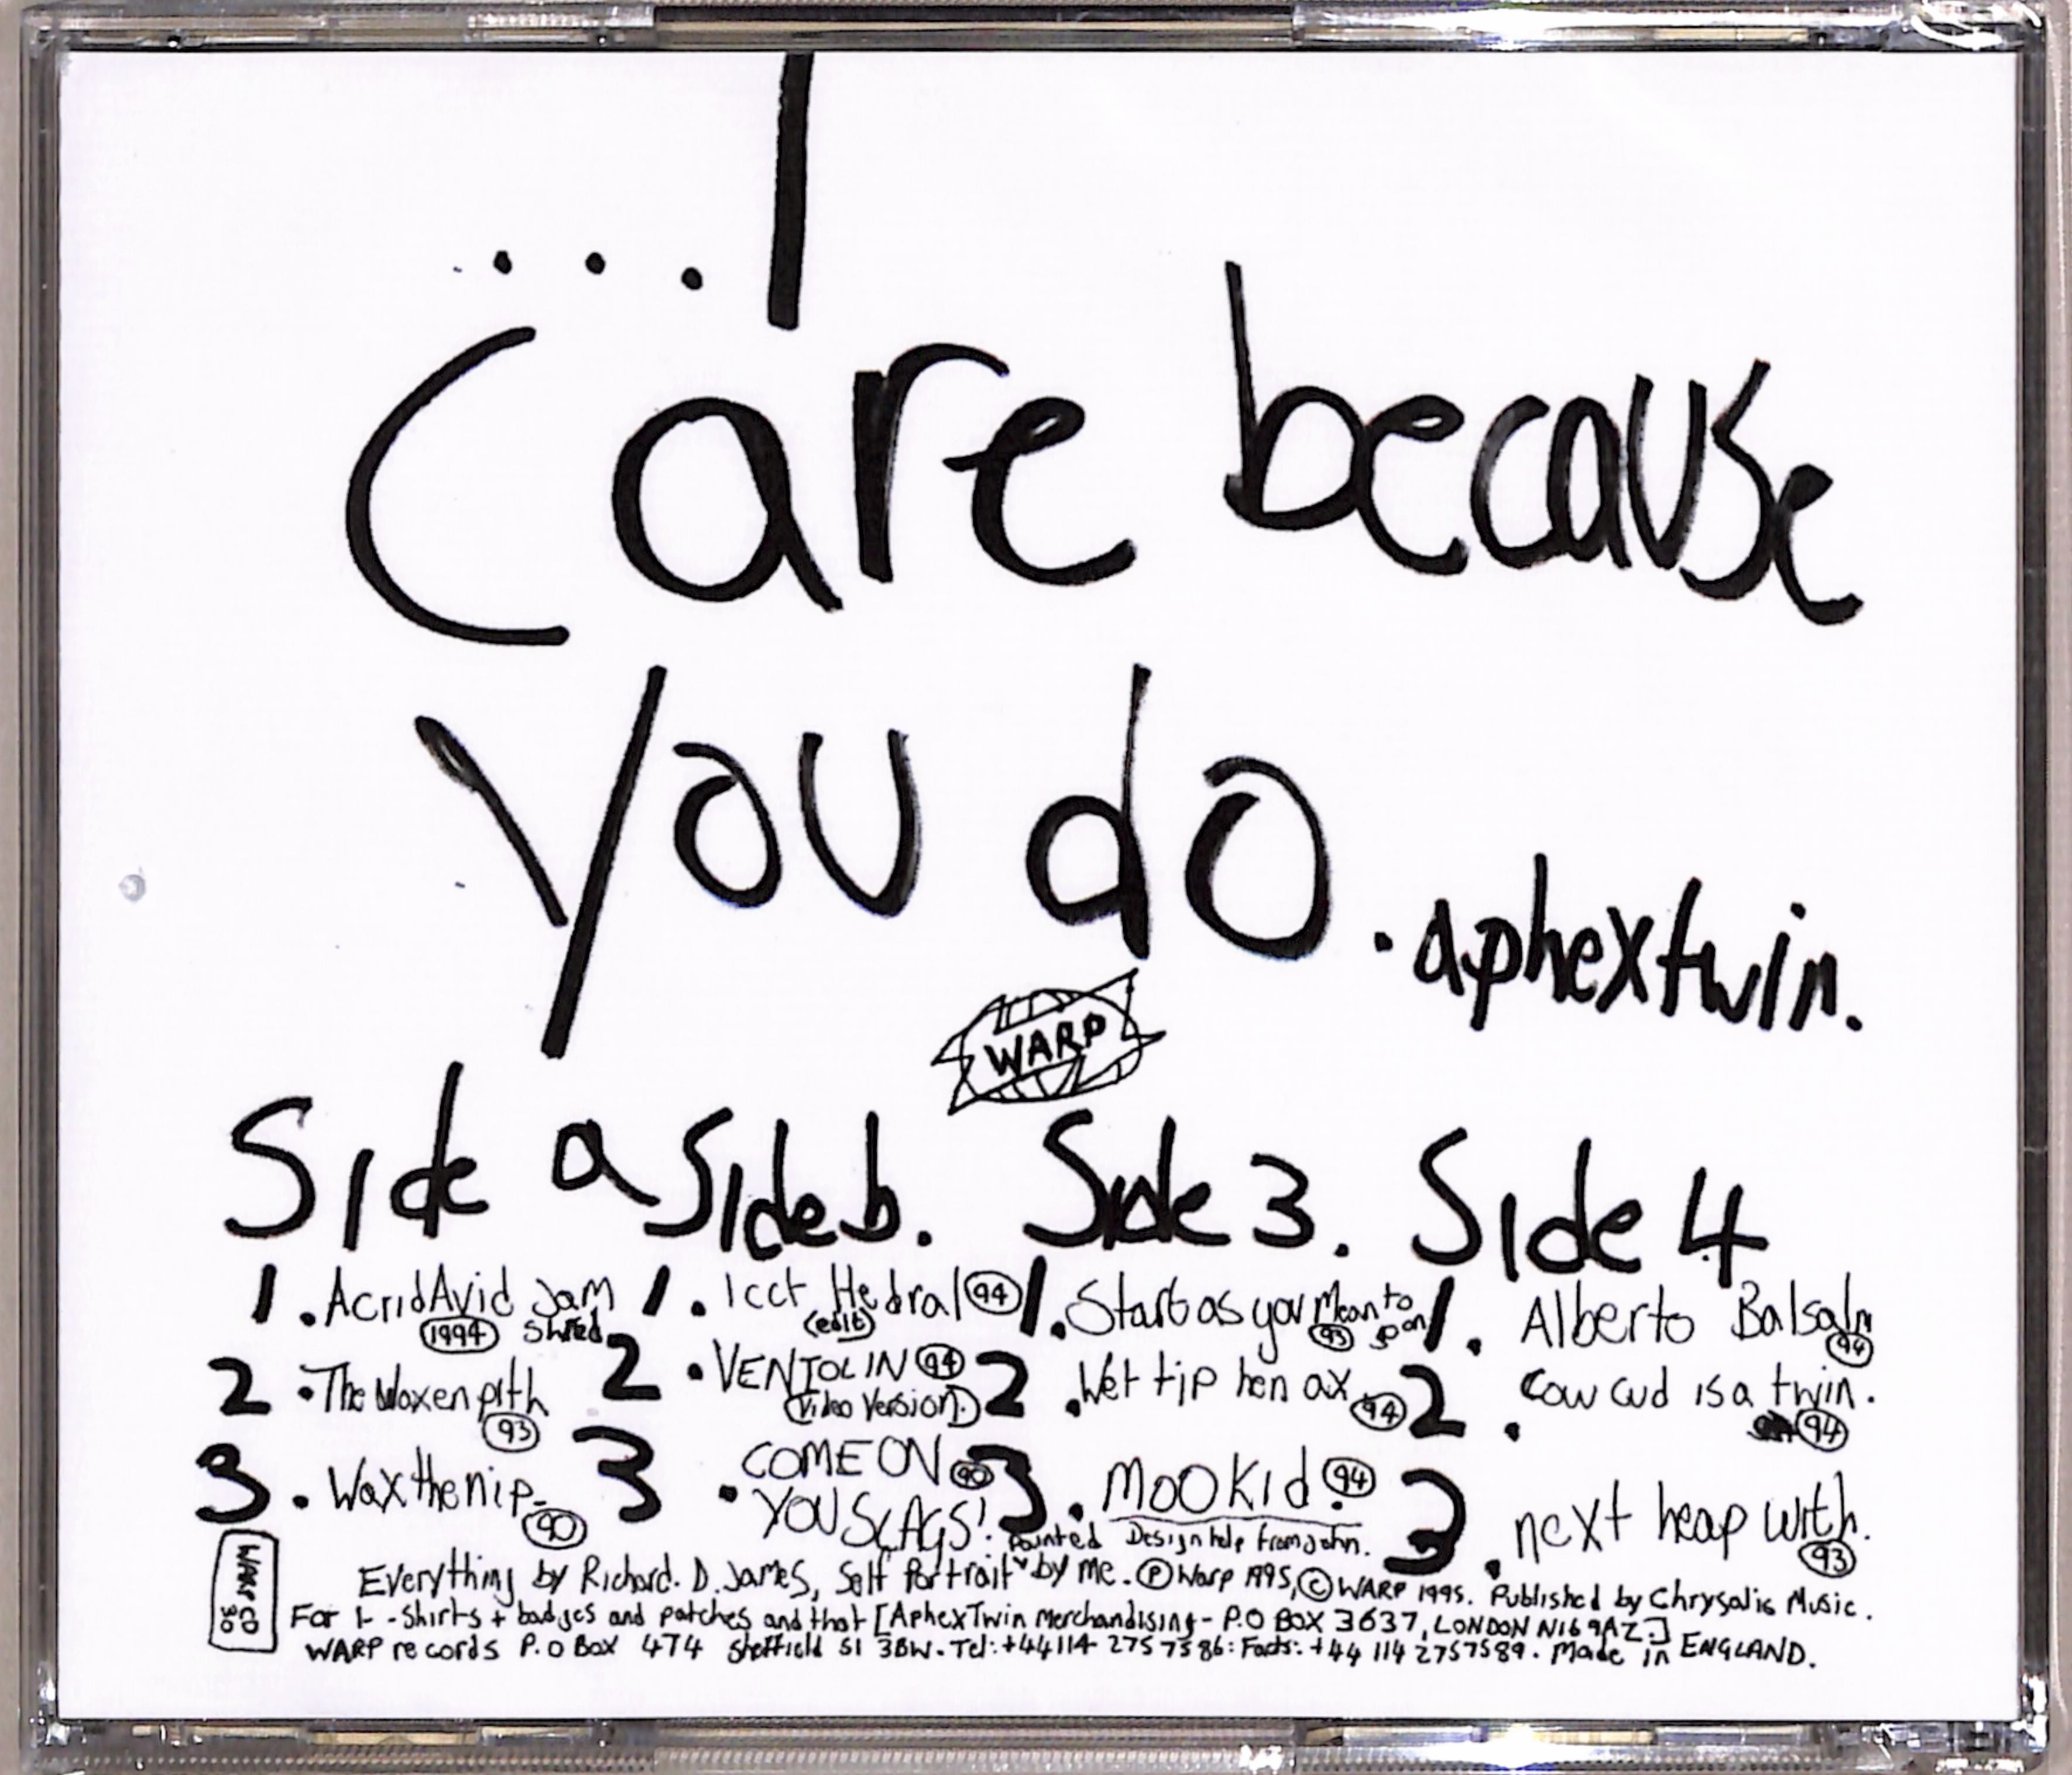 ...I
care because
you do
.aphextwin.
WARP
Side a Side b. Side 3. Side 4
1. AcridAvid Jam Shred 1994
2. The Waxen pith 93
3. Wax the nip. 90
1. Icct Hedral (edit) 94
2. VENTOLIN 94 (Video Version).
3. COME ON YOU SLAGS! 90
1. Start as you Mean to go on 93
2. Wet tip hen ax. 94
3. MOOKid. 94
1. Alberto Balsalm 94
2. Cow cud is a twin. 94
3. next heap with. 93
Design help from John.
Everything by Richard. D. James, Self Portrait painted by me. Ⓟ Warp 1995, © WARP 1995. Published by Chrysalis Music.
For t-shirts + badges and patches and that [AphexTwin Merchandising - P.O BOX 3637, LONDON N16 9AZ.]
WARP records P.O Box 474 Sheffield S1 3BW. Tel: +44114 2757586: Facts: +44 114 2757589. Made in ENGLAND.
WARP CD
30